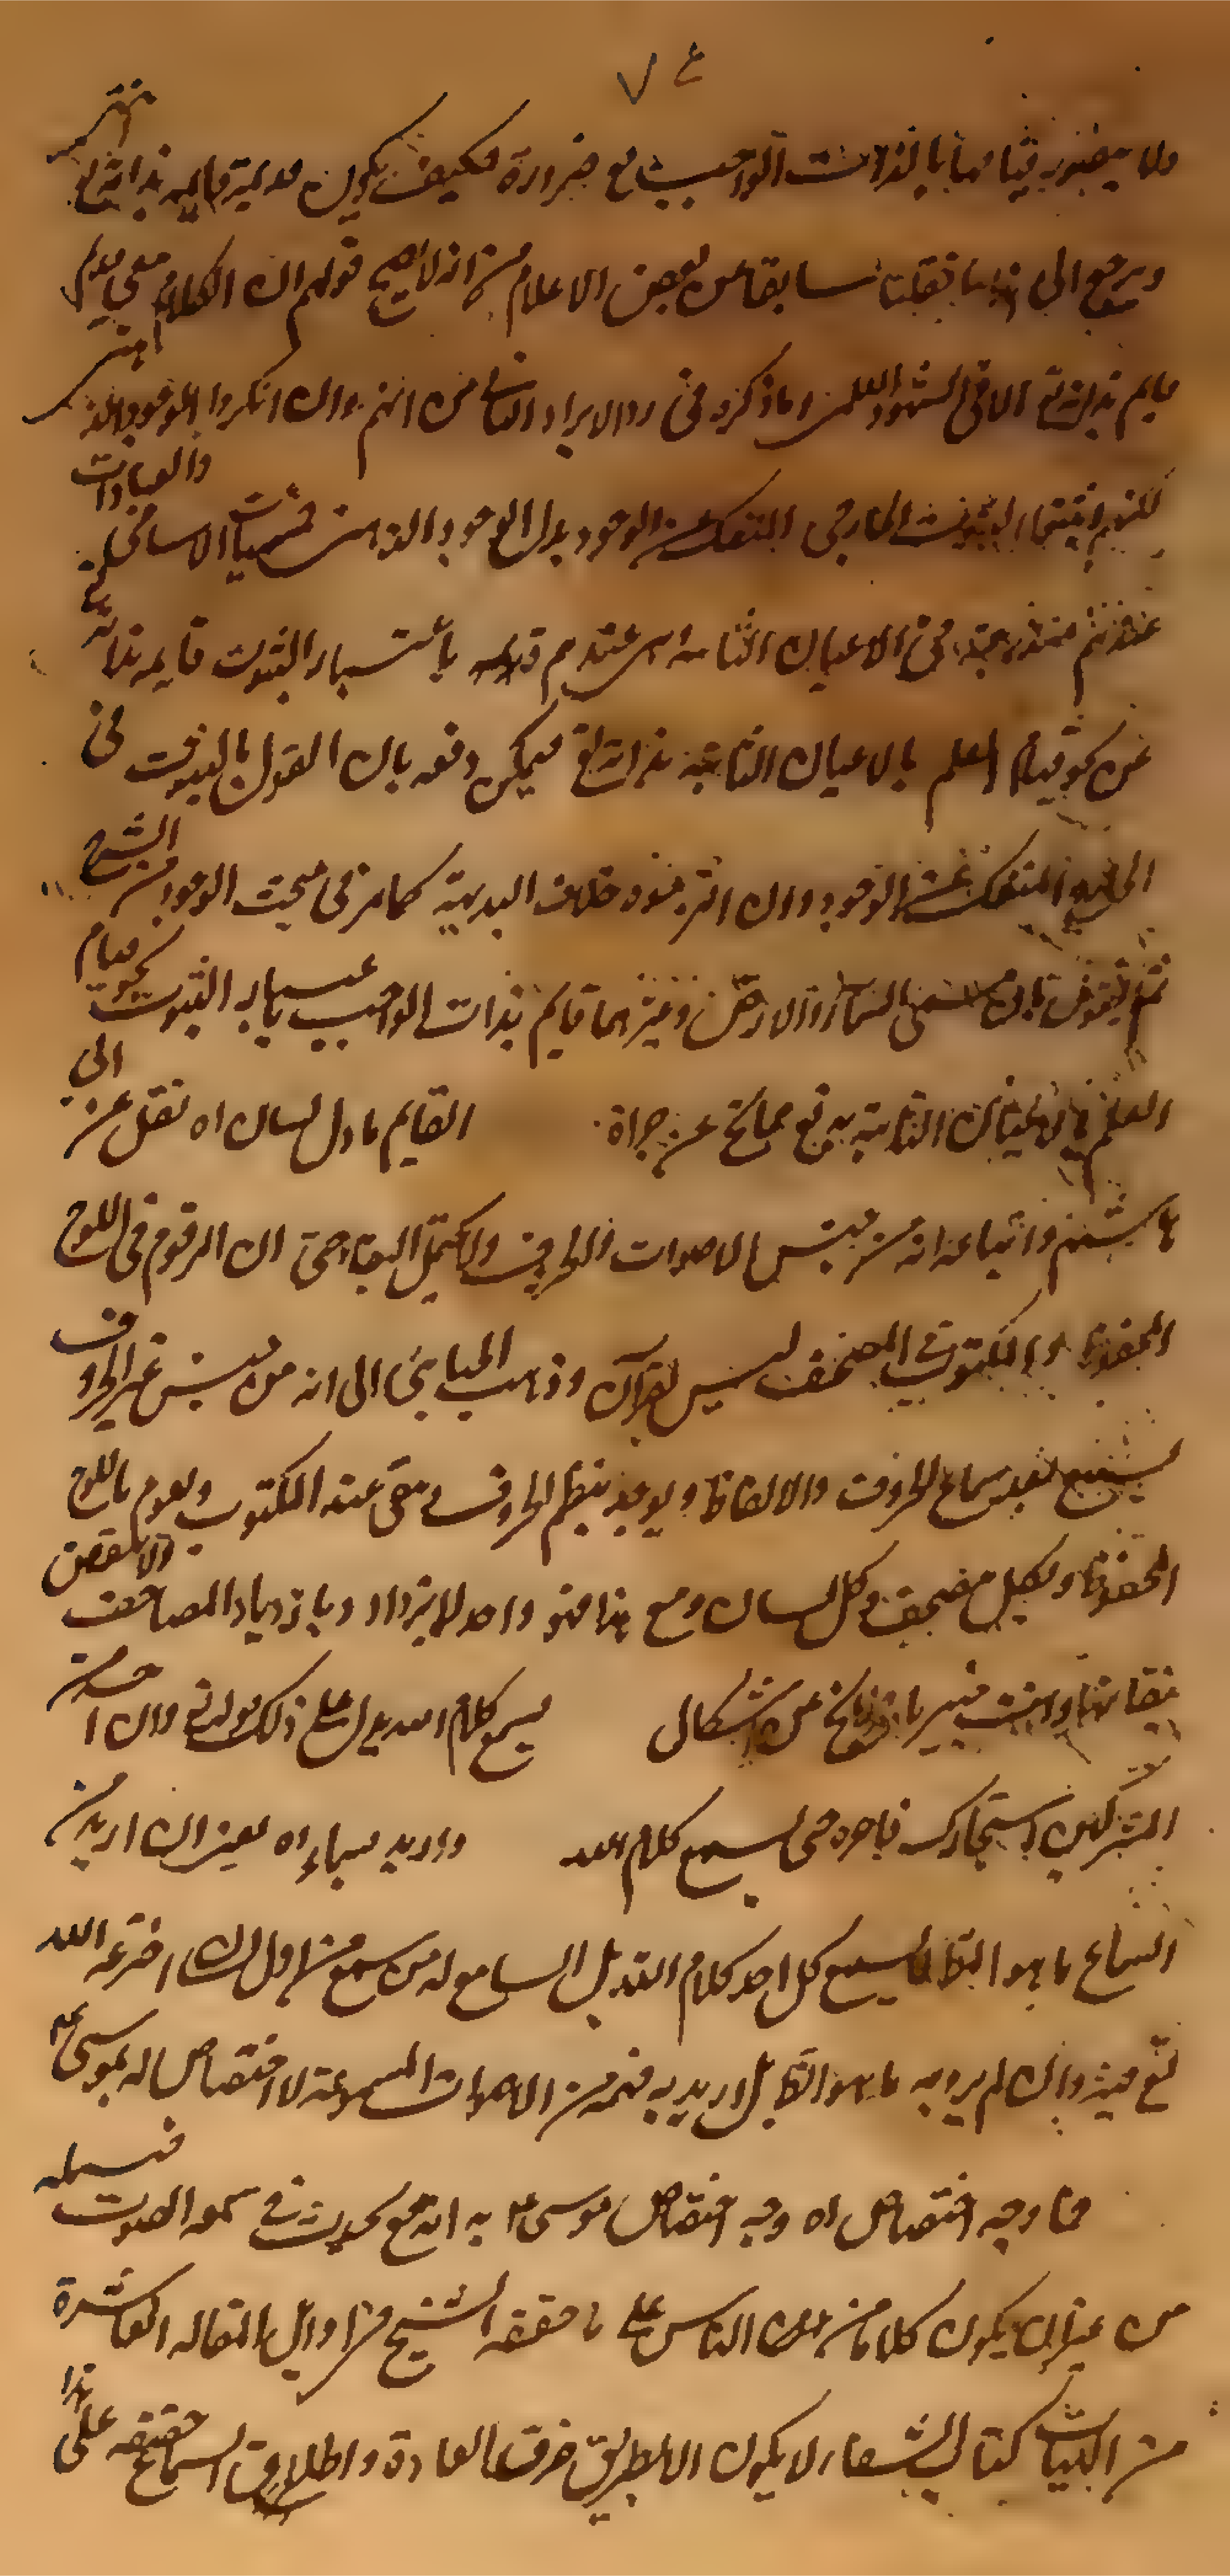 ٧٤
ولا يتصور قيامها بالذات الواجب مع ضرورة فكيف يكون قديمة قايمه بذاته تع انتهى
ويرجع الى هذا ما نقلنا سابقا من بعض الاعلام من انه لا يصح قولهم ان الكلام معنى قديم
قايم بذاته تع الا في الشهود العلمي وما ذكره في رد الايراد الثاني من انهم وان انكروا الوجود الذهني
لكنهم اثبتوا الثبوت الخارجي المنفك عن الوجود بدل الوجود الذهني فمسميات الاسامي والعبارات
عندهم مندرجة في الاعيان الثابتة اى عندهم قديمه باعتبار الثبوت قايمه بذاته تع
عن نحو قيام العلم بالاعيان الثابتة بذاته تع فيمكن دفعه بان القول بالثبوت في
الخارج المنفك عن الوجود وان التزموه خلاف البديهة كما مر في مبحث الوجود من الشرح
ثم القول بان مسمى السماء والارض وغيرهما قايم بذات الواجب باعتبار الثبوت نحو قيام
العلم بالاعيان الثابتة به تع مما لا يخ عن جراة القايم باول لسان اه نقل عن ابي
هاشم واتباعه انه من جنس الاصوات والحروف ولا يحتمل البقاء حتى ان المرقوم في اللوح
المحفوظ والمكتوب في المصحف ليس بقرآن وذهب الجبائي الى انه من جنس غير الحروف
يسمع بعد سماع الحروف والالفاظ ويوجد بنظم الحروف ويبقى عند المكتوب ويقوم باللوح
المحفوظ وبكل مصحف وكل لسان ومع هذا فهو واحد لا يزداد وبازدياد المصاحف ولا ينقص
بنقصانها وانت خبير بانه لا يخ عن اشكال يسمع كلام الله يدل على ذلك قوله تع وان احد من
المشركين استجارك فاجره حتى يسمع كلام الله واريد سماع اه يعني ان اريد من
السماع ما هو الظ فلا يسمع كل احد كلام الله بل السامع له من سمع من اول لسان اخترعه الله
تع فيه وان لم يرد به ما هو الظ بل اريد به فهمه من الاصوات المسموعة لا اختصاص له بموسى ع
فما وجه اختصاص اه وجه اختصاص موسى ع به انه تع يحدث في سمعه الصوت
من غير ان يكون كلاما من تلك الناس على ما حققه الشيخ في اوايل المقاله العاشرة
من الهيات كتاب الشفاء لا يكون الا بطريق خرق العادة واطلاق السماع حقيقه على هذا